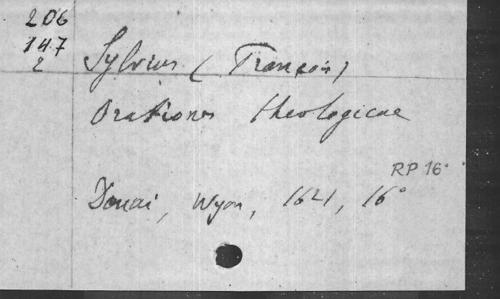 206
147
2
Sylvius (François)
Orationes theologicae
RP 16°
Douai, Wyon, 1621, 16°